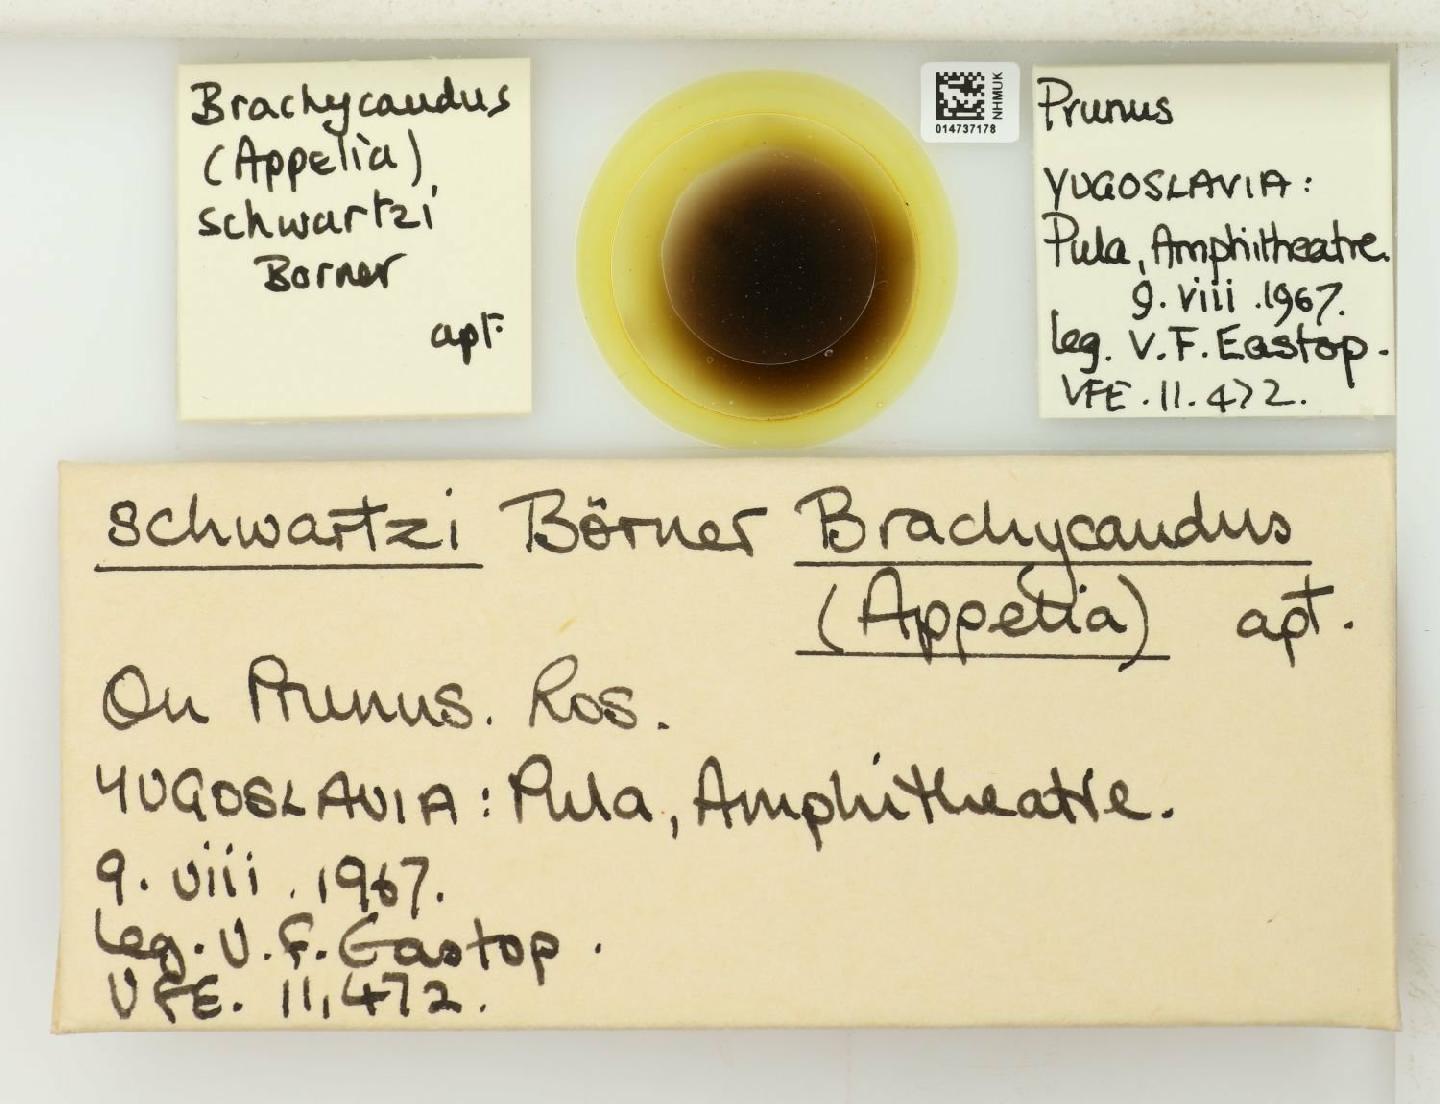 Brachycaudus
(Appelia)
schwartzi
Borner
apt.
NHMUK
014737178
Prunus
YUGOSLAVIA:
Pula, Amphitheatre.
9. viii. 1967.
leg. V.F. Eastop.
VFE. 11.472.
schwartzi Börner Brachycaudus
(Appelia) apt.
On Prunus. Ros.
YUGOSLAVIA: Pula, Amphitheatre.
9. viii. 1967.
leg. V.F. Eastop.
VFE. 11,472.